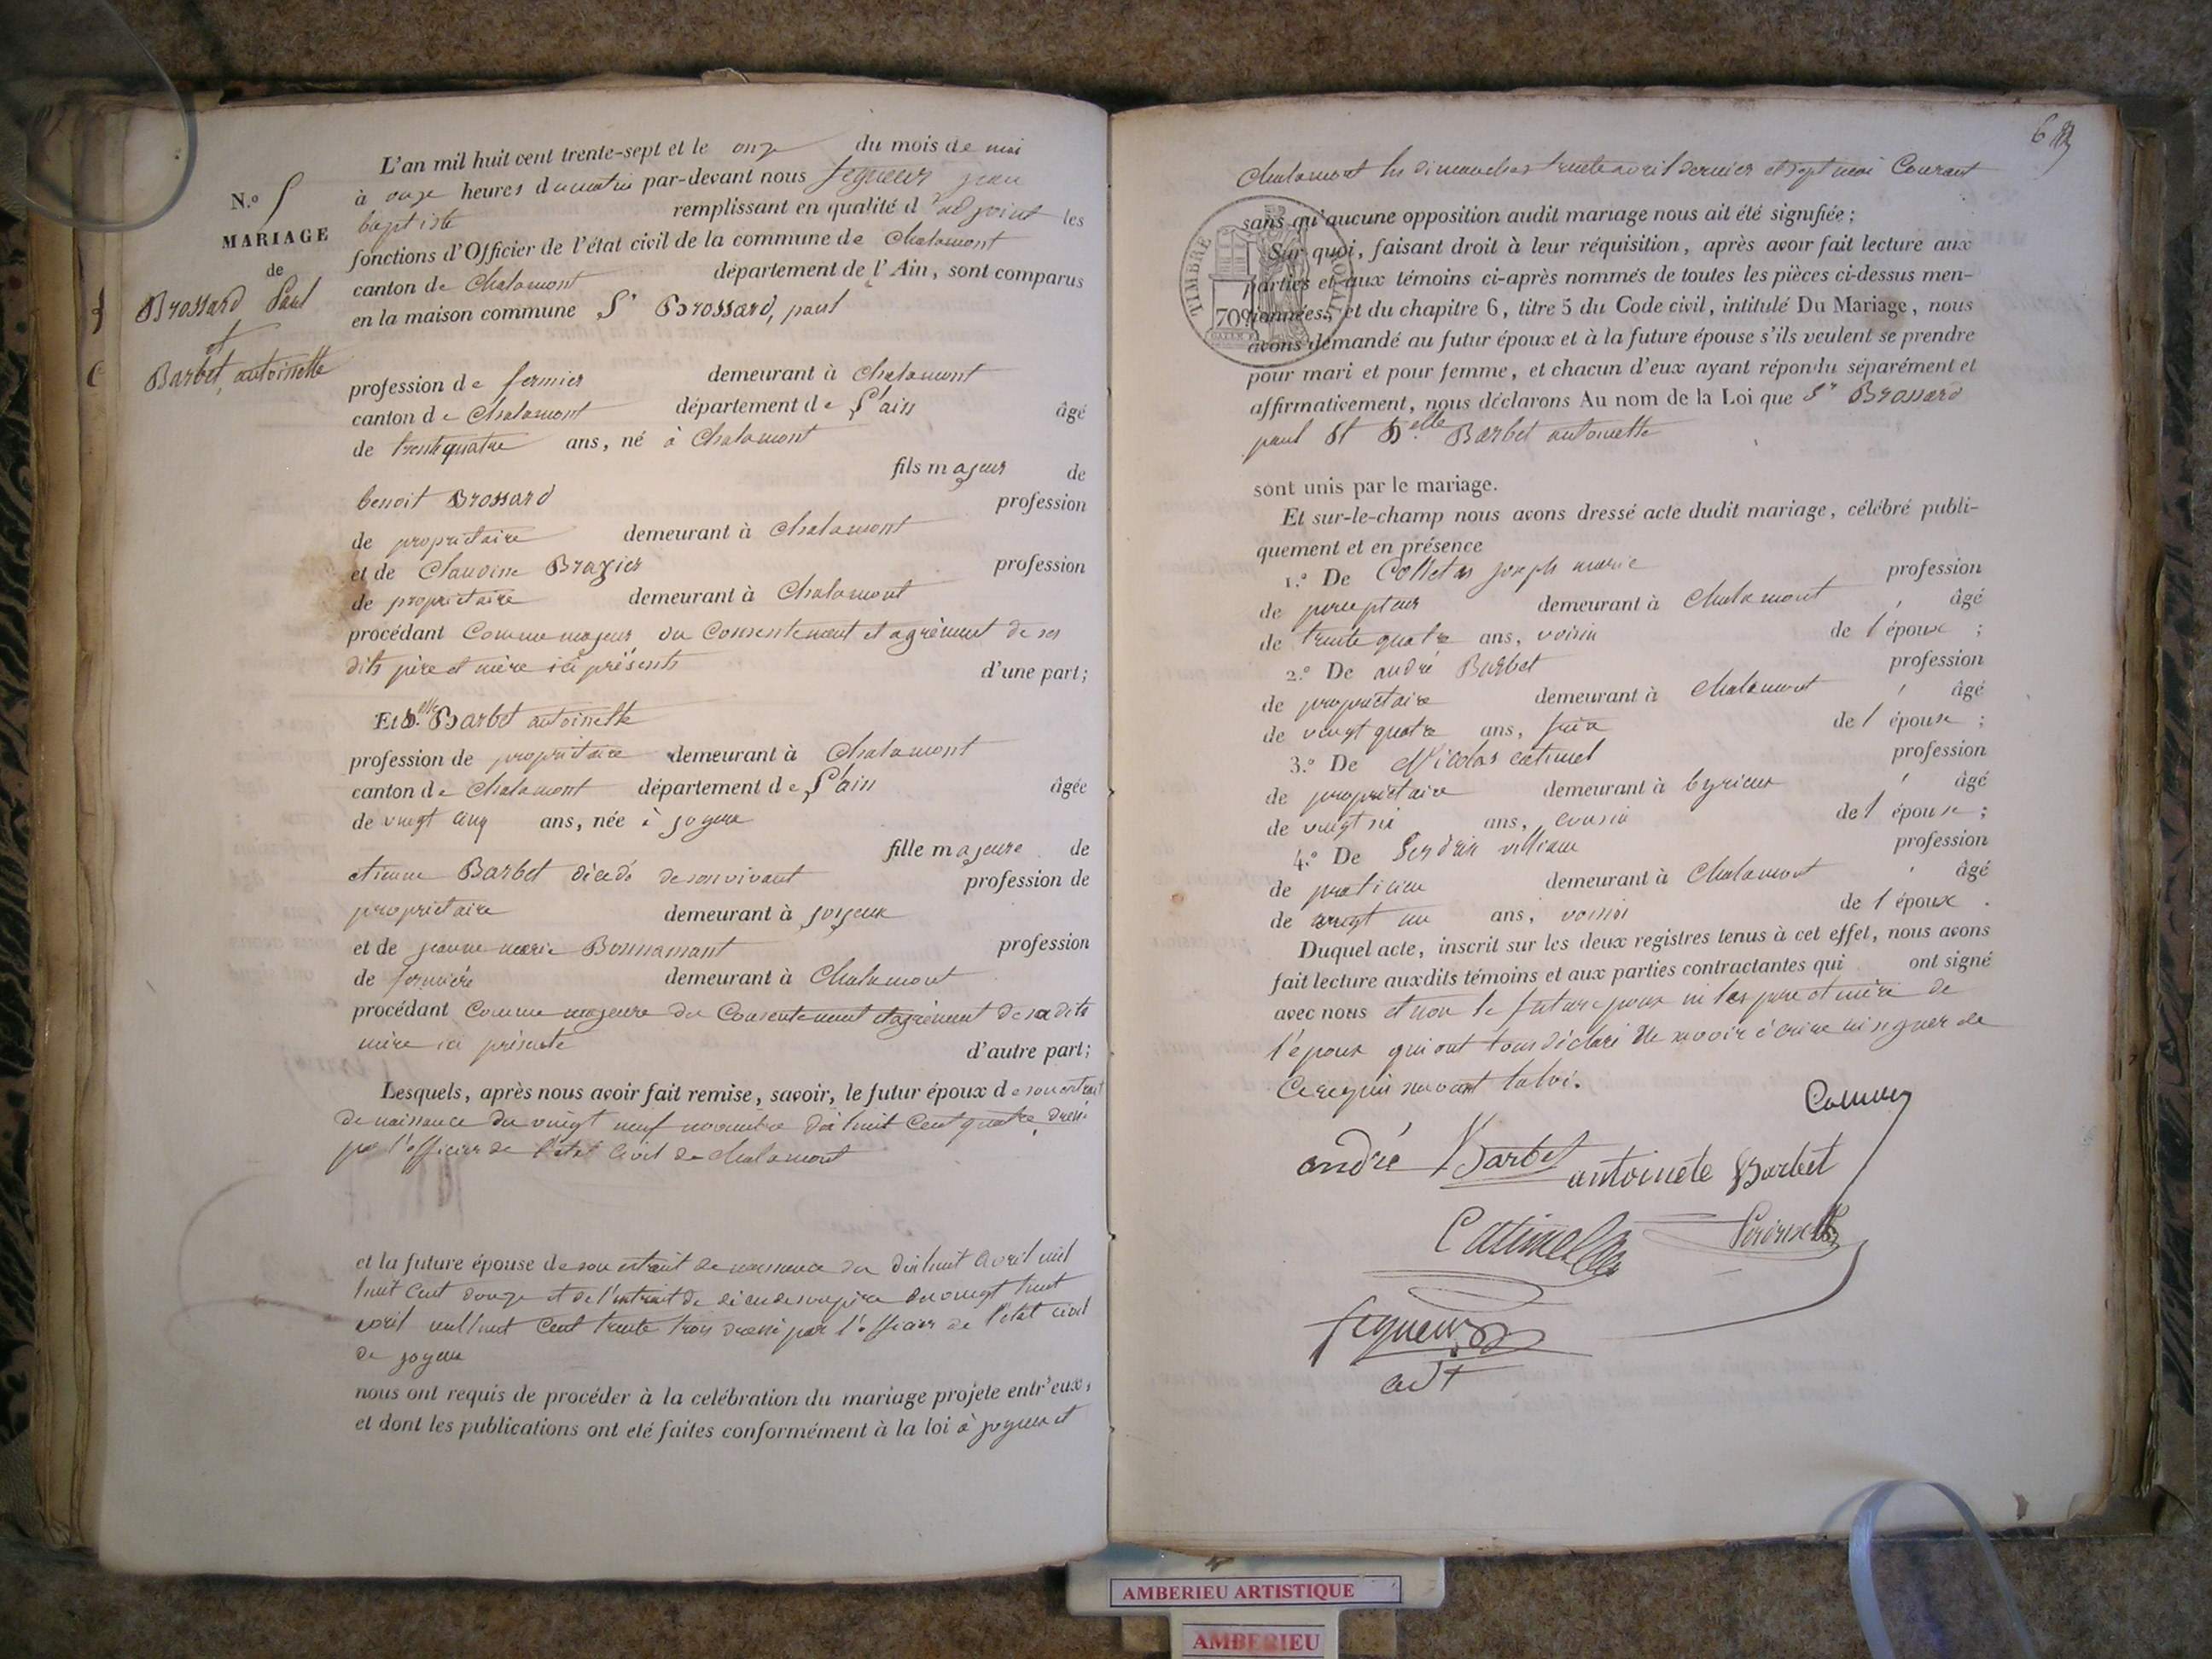 L'an mil huit cent trente-sept et le onze du mois de mai
à onze heures du matin par-devant nous jean
baptiste remplissant en qualité d'adjoint les
fonctions d'Officier de l'état civil de la commune de Chalamont
canton de Chalamont département de l'Ain, sont comparus
en la maison commune Sr Brossard, paul
N.o 5
MARIAGE
de
Brossard Paul
et
Barbet, antoinette
profession de fermier demeurant à Chalamont
canton de Chalamont département de l'ain âgé
de trente quatre ans, né à Chalamont
fils majeur de
benoit Brossard profession
de propriétaire demeurant à Chalamont
et de Claudine Brazier profession
de propriétaire demeurant à Chalamont
procédant Comme majeur du Consentement et agrément de ses
dits père et mère ici présents d'une part;
Et D.elle Barbet antoinette
profession de propriétaire demeurant à Chalamont
canton de Chalamont département de l'ain âgée
de vingt cinq ans, née à joyeux
fille majeure de
etienne Barbet décédé de son vivant profession de
propriétaire demeurant à joyeux
et de jeanne marie Bonnamant profession
de fermière demeurant à Chalamont
procédant Comme majeure du Consentement et agrément de sa dite
mère ici présente d'autre part;
Lesquels, après nous avoir fait remise, savoir, le futur époux de son extrait
de naissance du vingt neuf novembre dix huit Cent quatre, dressé
par l'officier de l'état Civil de chalamont
et la future épouse de son extrait de naissance du dix huit avril mil
huit Cent douze et de l'extrait de décès de son père du vingt huit
avril mil huit Cent trente trois dressé par l'officier de l'état civil
de joyeux
nous ont requis de procéder à la celébration du mariage projete entr'eux,
et dont les publications ont eté faites conformément à la loi à joyeux et
6
Chalamont les dimanches trente avril dernier et sept mai Courant
sans qu'aucune opposition audit mariage nous ait été signifiée;
TIMBRE ROYAL
70c
Sur quoi, faisant droit à leur réquisition, après avoir fait lecture aux
parties et aux témoins ci-après nommés de toutes les pièces ci-dessus men-
tionnées, et du chapitre 6, titre 5 du Code civil, intitulé Du Mariage, nous
avons demandé au futur époux et à la future épouse s'ils veulent se prendre
pour mari et pour femme, et chacun d'eux ayant répondu séparément et
affirmativement, nous déclarons Au nom de la Loi que Sr Brossard
paul Et D.elle Barbet antoinette
sont unis par le mariage.
Et sur-le-champ nous avons dressé acte dudit mariage, célébré publi-
quement et en présence
1.o De joseph marie profession
de percepteur demeurant à Chalamont, âgé
de trente quatre ans, voisin de l'époux ;
2.o De andré Barbet profession
de propriétaire demeurant à Chalamont, âgé
de vingt quatre ans, frère de l'épouse ;
3.o De Nicolas catimel profession
de propriétaire demeurant à byrieux, âgé
de vingt six ans, cousin de l'épouse ;
4.o De profession
de praticien demeurant à Chalamont, âgé
de vingt un ans, voisin de l'époux .
Duquel acte, inscrit sur les deux registres tenus à cet effet, nous avons
fait lecture auxdits témoins et aux parties contractantes qui ont signé
avec nous et non le futur époux ni les père et mère de
l'époux qui ont tous déclaré ne savoir écrire ni signer de
Ce requis suivant la loi.
andré Barbet antoinete Barbet
Catimel
adt
AMBERIEU ARTISTIQUE
AMBERIEU